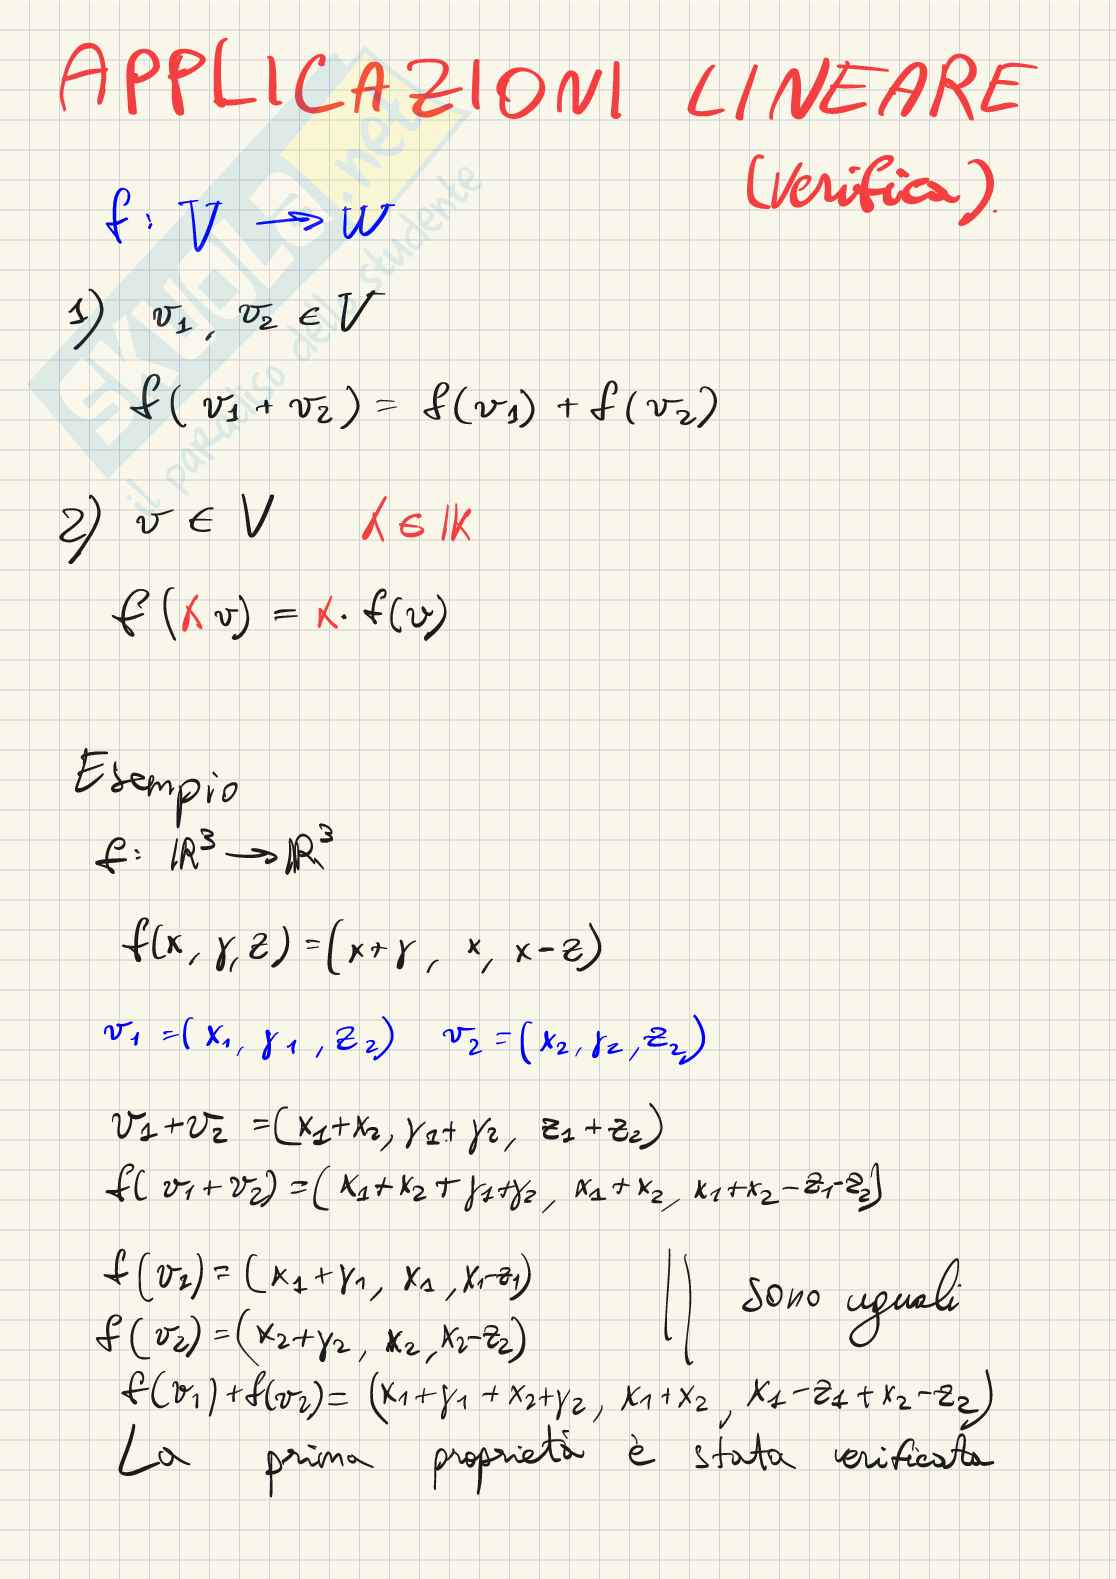 APPLICAZIONI LINEARE
(Verifica).
f: V → W
1) v1, v2 ∈ V
f(v1 + v2) = f(v1) + f(v2)
2) v ∈ V λ ∈ IK
f(λv) = λ· f(v)
Esempio
f: IR³ → IR³
f(x, y, z) = (x+y, x, x-z)
v1 = (x1, y1, z2) v2 = (x2, y2, z2)
v1+v2 = (x1+x2, y1+y2, z1+z2)
f(v1+v2) = (x1+x2+y1+y2, x1+x2, x1+x2-z1-z2)
f(v2) = (x1+y1, x1, x1-z1)
|| sono uguali
f(v2) = (x2+y2, x2, x2-z2)
f(v1)+f(v2) = (x1+y1+x2+y2, x1+x2, x1-z1+x2-z2)
La prima proprietà è stata verificata
SKUOLA.net
il paradiso dello studente